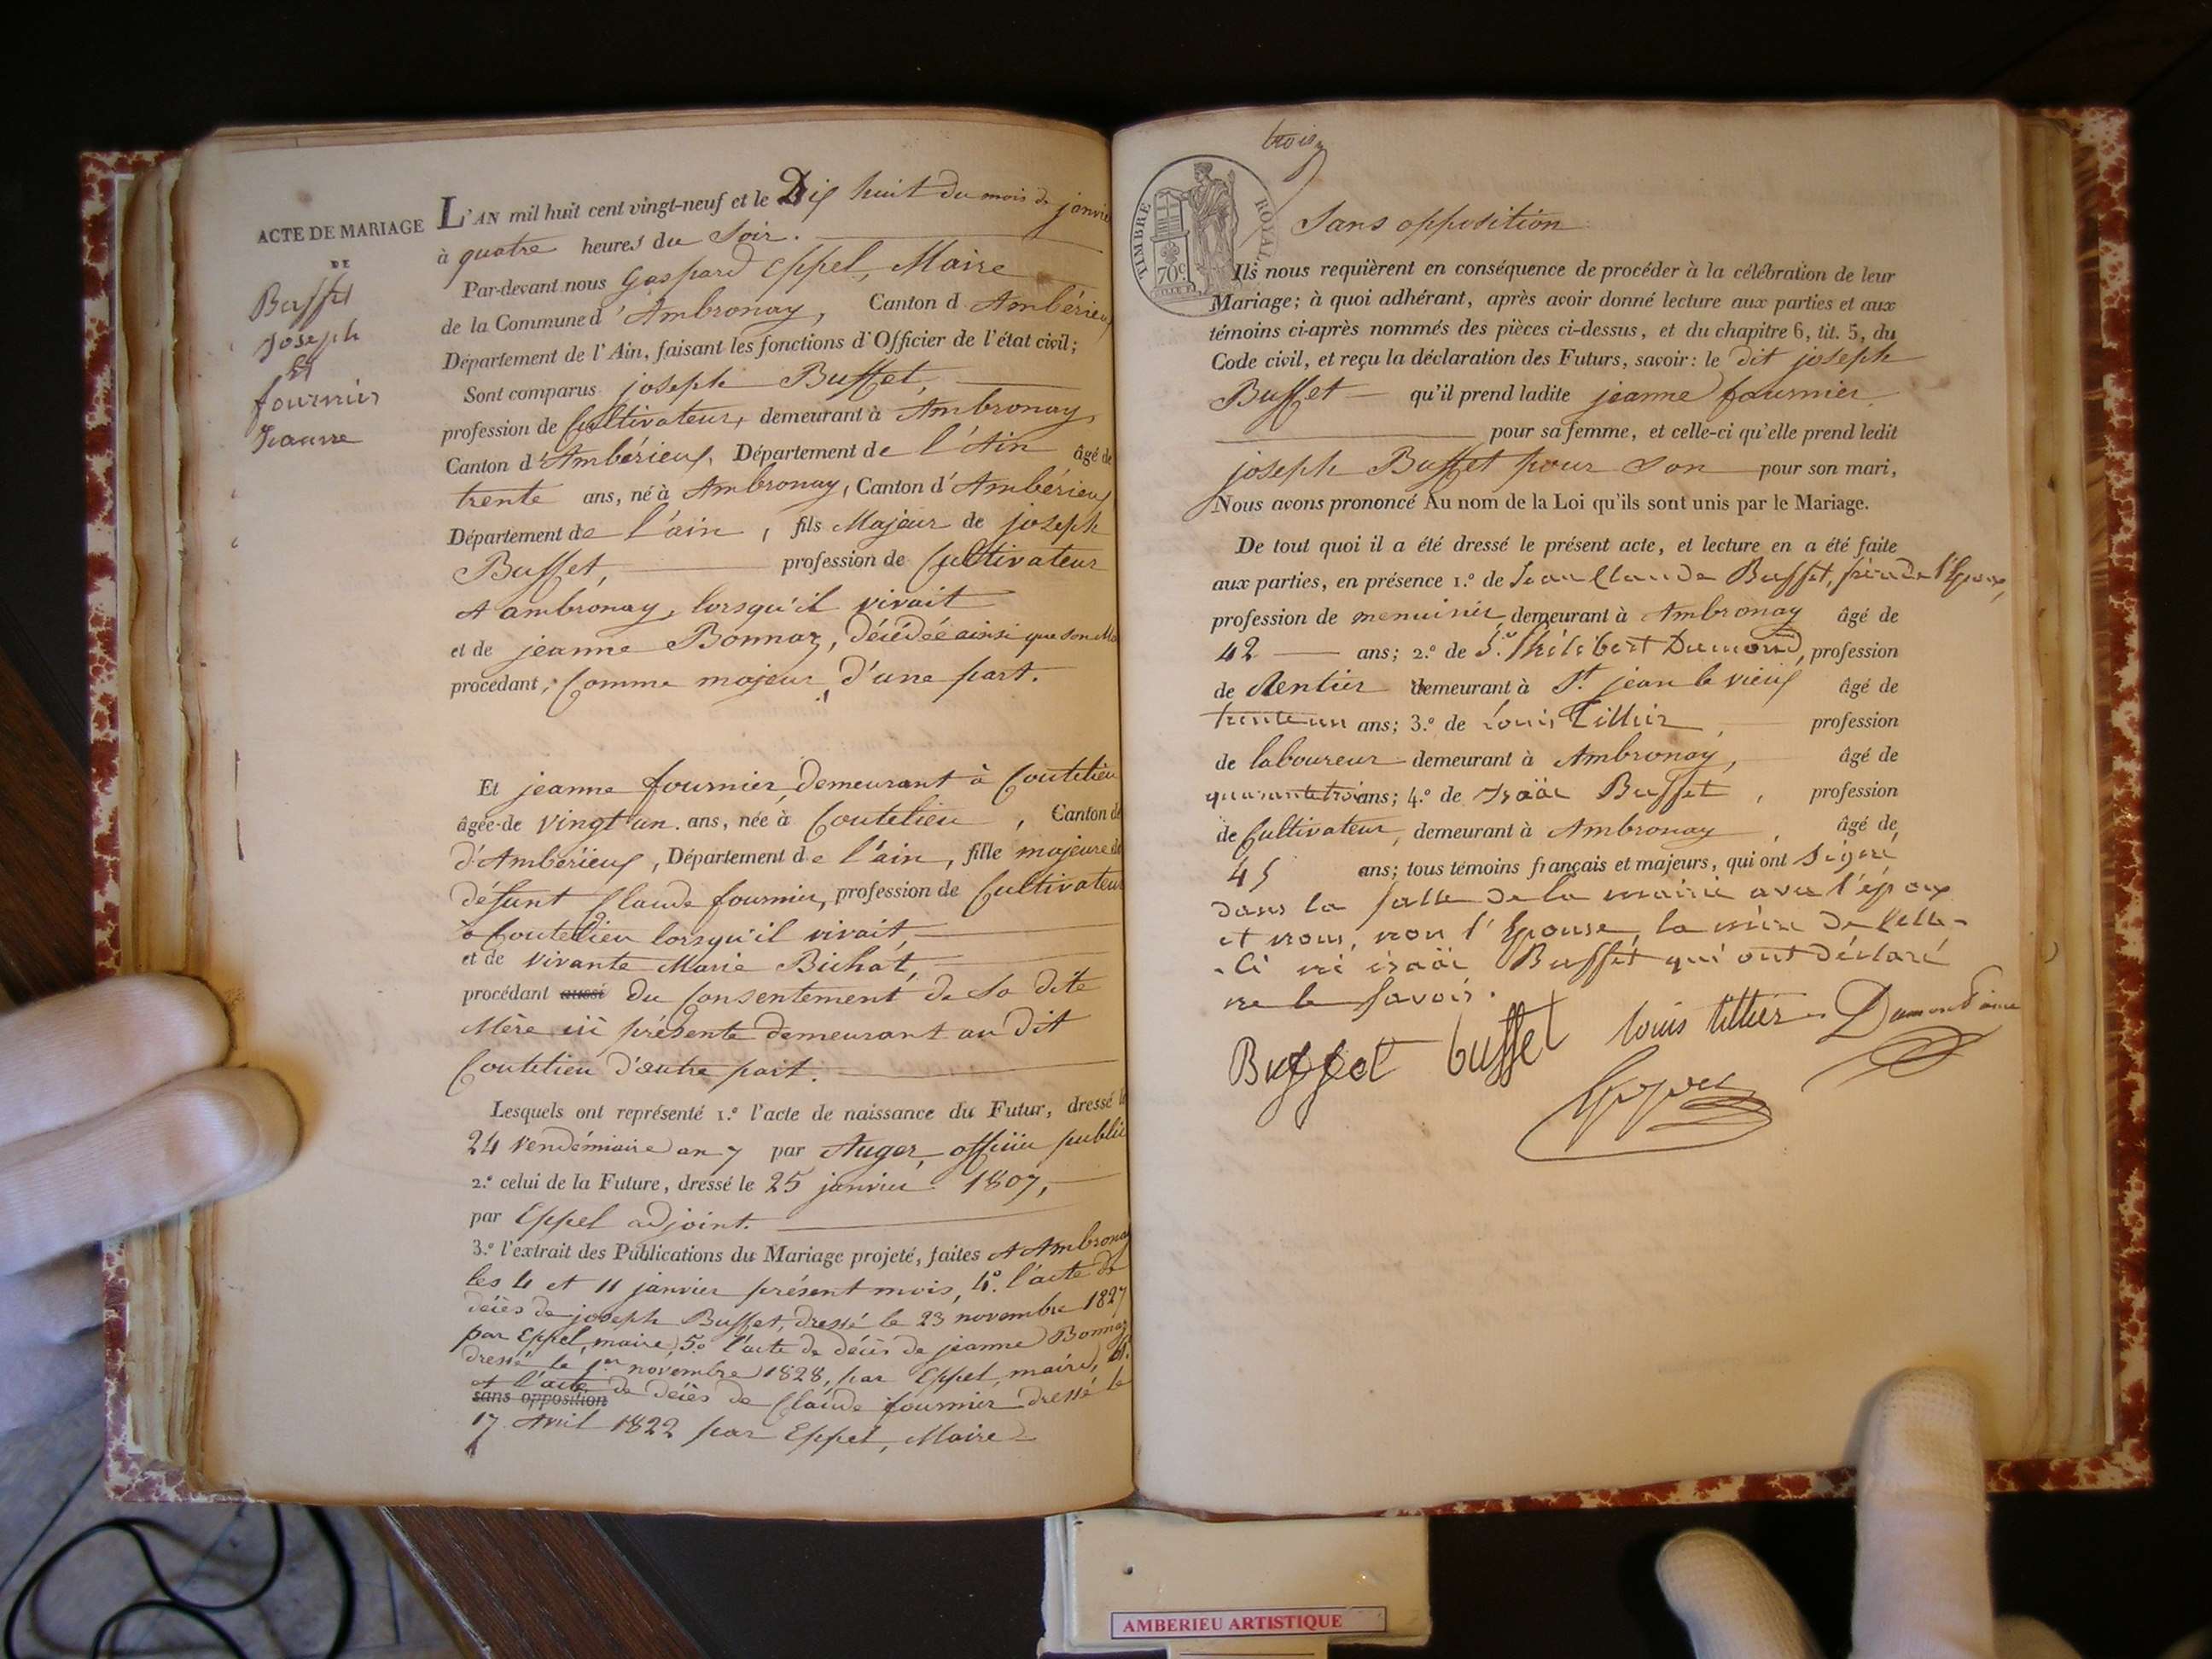 ACTE DE MARIAGE
DE
Buffet
Joseph
Et
fournier
Jeanne
L'AN mil huit cent vingt-neuf et le Dix huit du mois de janvier
à quatre heures du Soir.
Par-devant nous Gaspard Eppel, Maire
de la Commune d'Ambronay, Canton d'Ambérieux
Département de l'Ain, faisant les fonctions d'Officier de l'état civil;
Sont comparus joseph Buffet,
profession de Cultivateur, demeurant à Ambronay,
Canton d'Ambérieux, Département de l'Ain âgé de
trente ans, né à Ambronay, Canton d'Ambérieux
Département de l'ain, fils Majeur de joseph
Buffet, profession de Cultivateur
A ambronay, lorsqu'il vivait
et de jeanne Bonnaz, décédée ainsi que son
procédant, Comme majeur, d'une part.
Et jeanne fournier, demeurant à Coutelieu
âgée de vingt un ans, née à Coutelieu, Canton de
d'Ambérieux, Département de l'ain, fille majeure de
défunt Claude fournier, profession de Cultivateur
à Coutelieu lorsqu'il vivait,
et de vivante Marie Bichat,
procédant aussi du Consentement de Sa dite
Mère ici présente demeurant au dit
Coutelieu d'autre part.
Lesquels ont représenté 1.º l'acte de naissance du Futur, dressé le
24 Vendémiaire an 7 par Auger, officier public
2.º celui de la Future, dressé le 25 janvier 1807,
par Eppel adjoint.
3.º l'extrait des Publications du Mariage projeté, faites A Ambronay
les 4 et 11 janvier présent mois, 4.º l'acte de
décès de joseph Buffet, dressé le 23 novembre 1827
par Eppel, maire, 5.º l'acte de décès de jeanne Bonnaz
dressé le 1er novembre 1828, par Eppel, maire,
et l'acte de décès de Claude fournier dressé le
sans opposition
17 Avril 1822 par Eppel, Maire
trois
TIMBRE ROYAL
70c
Sans opposition
Ils nous requièrent en conséquence de procéder à la célébration de leur
Mariage; à quoi adhérant, après avoir donné lecture aux parties et aux
témoins ci-après nommés des pièces ci-dessus, et du chapitre 6, tit. 5, du
Code civil, et reçu la déclaration des Futurs, savoir: le dit joseph
Buffet qu'il prend ladite jeanne fournier
pour sa femme, et celle-ci qu'elle prend ledit
joseph Buffet pour son pour son mari,
Nous avons prononcé Au nom de la Loi qu'ils sont unis par le Mariage.
De tout quoi il a été dressé le présent acte, et lecture en a été faite
aux parties, en présence 1.º de Jean Claude Buffet, frère de l'Epoux,
profession de menuisier demeurant à Ambronay âgé de
42 ans; 2.º de Philibert Dumond, profession
de Rentier demeurant à St. jean le vieux âgé de
trente un ans; 3.º de Louis Tillier profession
de laboureur demeurant à Ambronay, âgé de
quarante trois ans; 4.º de Isaäc Buffet, profession
de Cultivateur, demeurant à Ambronay, âgé de
45 ans; tous témoins français et majeurs, qui ont Signé
dans la Salle de la mairie avec l'époux
et nous, non l'Epouse, la mère de Celle-
-Ci ni isaäc Buffet qui ont déclaré
ne le Savoir.
Buffet buffet louis tillier Dumond
AMBERIEU ARTISTIQUE